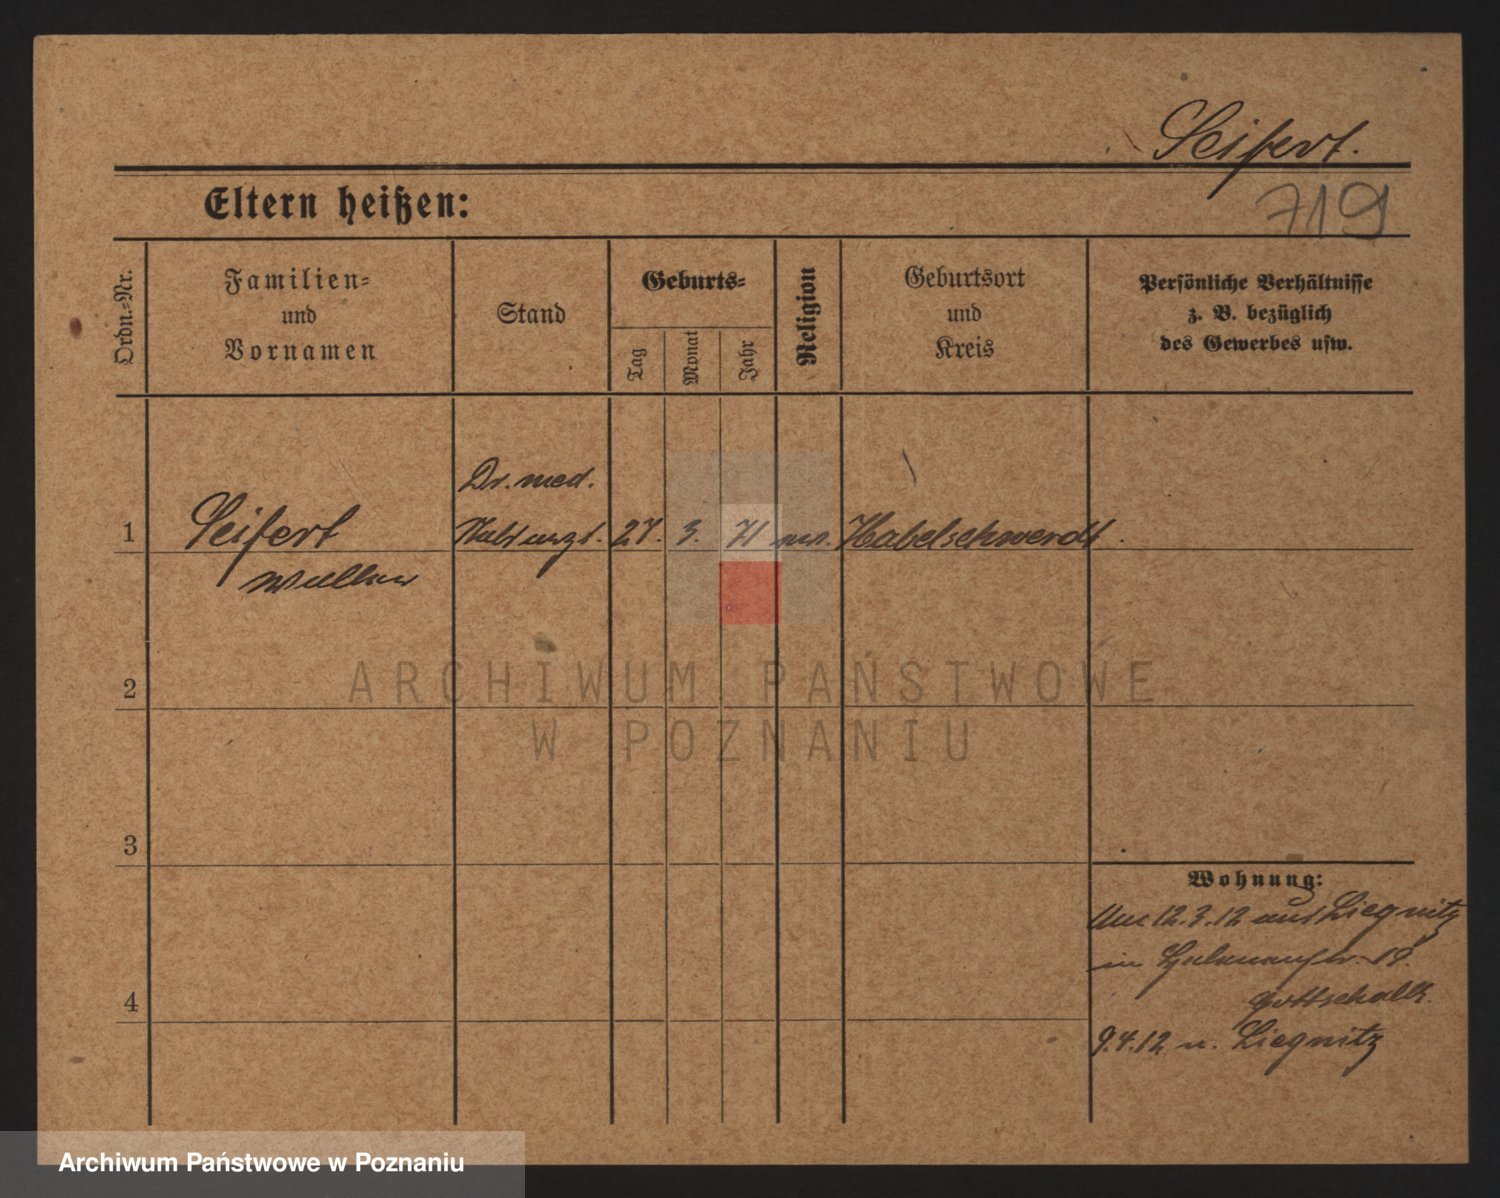 Seifert.
Eltern heißen:
719
Ordn.=Nr.
Familien=
und
Vornamen
Stand
Geburts=
Tag
Monat
Jahr
Religion
Geburtsort
und
Kreis
Persönliche Verhältnisse
z. B. bezüglich
des Gewerbes usw.
Dr. med.
1 Seifert 27. 3. 71 Habelschwerdt.
2
ARCHIWUM PAŃSTWOWE
W POZNANIU
3
Wohnung:
12.3.12 aus Liegnitz
in 19.
Gottschalk.
4
9.4.12 n. Liegnitz
Archiwum Państwowe w Poznaniu